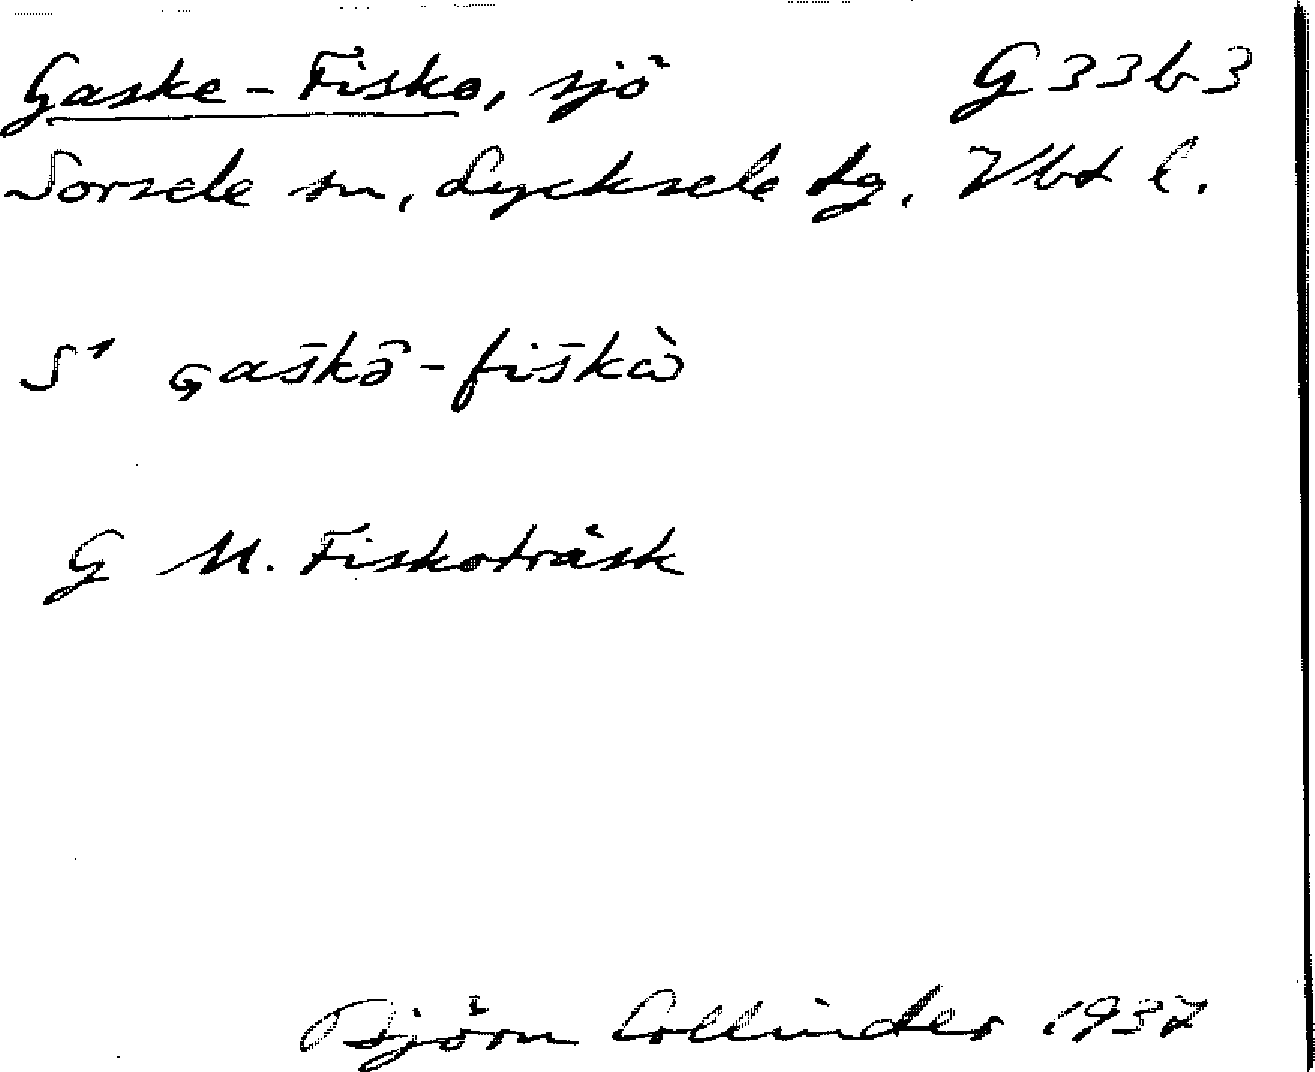 Gaske-Fisko, sjö G33b3
Sorsele sn, Lycksele tg. Vbt l.
S' Gaškō-fiškò
G M. Fiskoträsk
Björn Collinder 1937